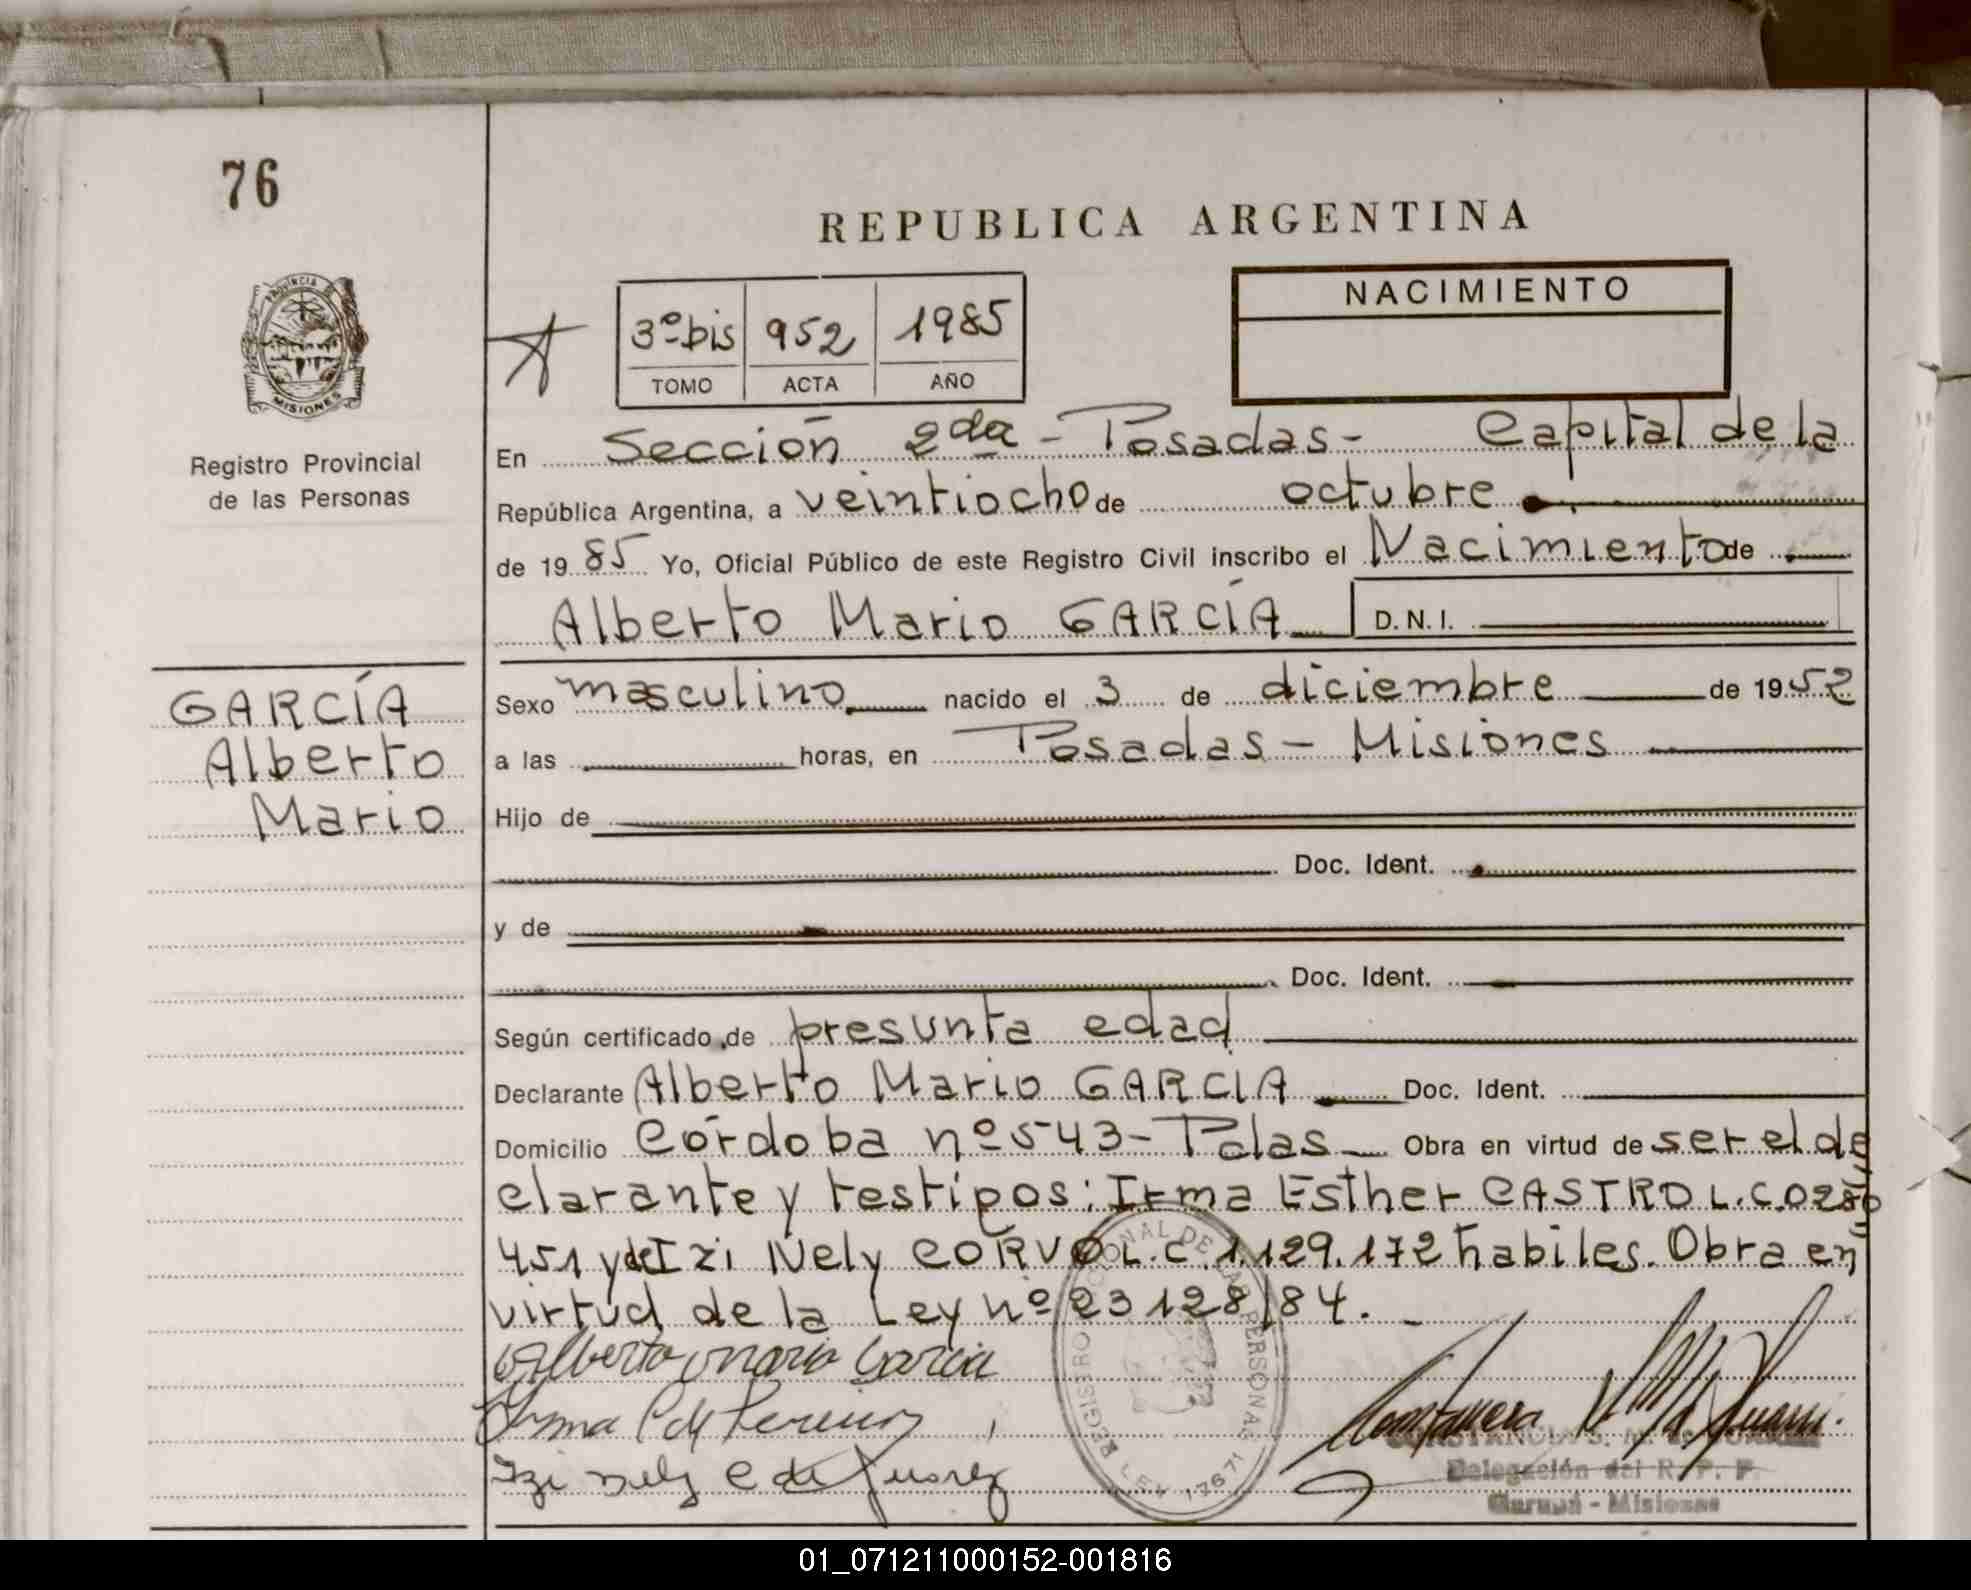 76
REPUBLICA ARGENTINA
PROVINCIA DE
MISIONES
Registro Provincial
de las Personas
3º bis 952 1985
TOMO ACTA AÑO
NACIMIENTO
En Sección 2da - Posadas - Capital de la
República Argentina, a veintiocho de octubre
de 1985 Yo, Oficial Público de este Registro Civil inscribo el Nacimiento de
Alberto Mario GARCÍA D.N.I.
GARCÍA
Alberto
Mario
Sexo masculino nacido el 3 de diciembre de 1952
a las horas, en Posadas - Misiones
Hijo de
Doc. Ident.
y de
Doc. Ident.
Según certificado de presunta edad
Declarante Alberto Mario GARCIA Doc. Ident.
Domicilio Córdoba nº 543 - Pdas Obra en virtud de ser el de
clarante y testigos: Irma Esther CASTRO L.C.
451 y de Izi Nely CORVO L.C 1.129.172 habiles. Obra en
virtud de la Ley nº 23128/84.
Alberto Mario Garcia
Irma C de
Izi Nely C de Juarez
REGISTRO NACIONAL DE LAS PERSONAS
LEY 17671
Delegación del R. P. P.
Garupá - Misiones
01_071211000152-001816